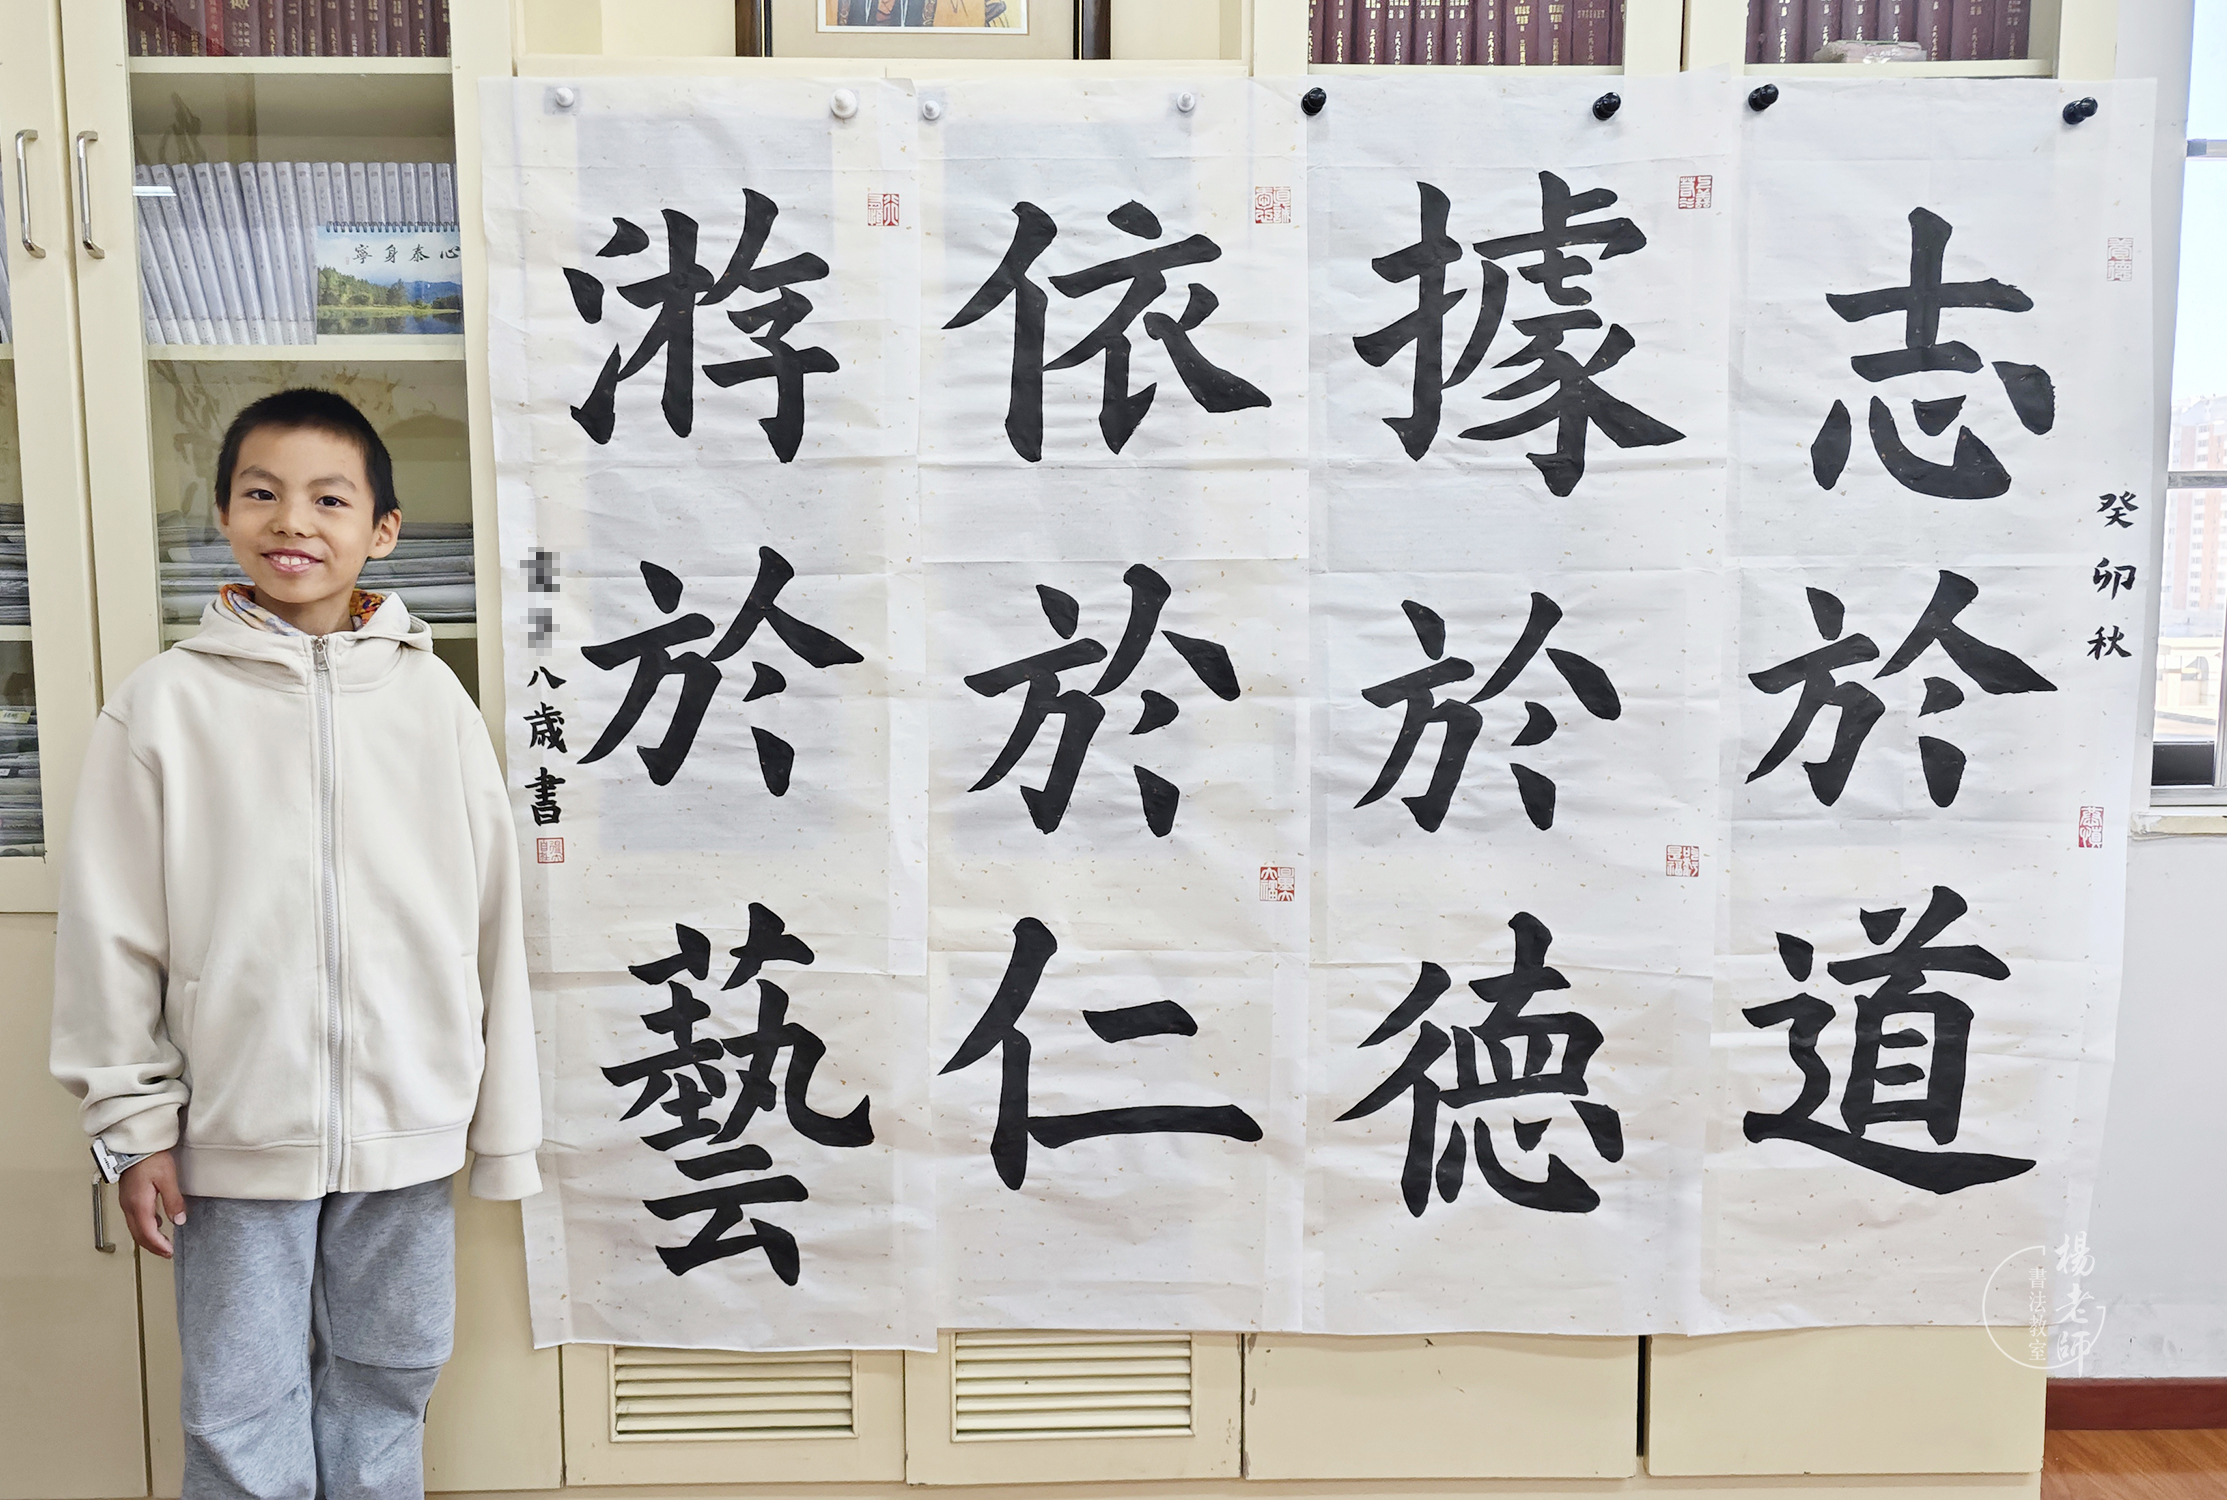 癸卯秋
志於道
據於德
依於仁
游於藝
八歲書
寧身泰心
楊老師
書法教室